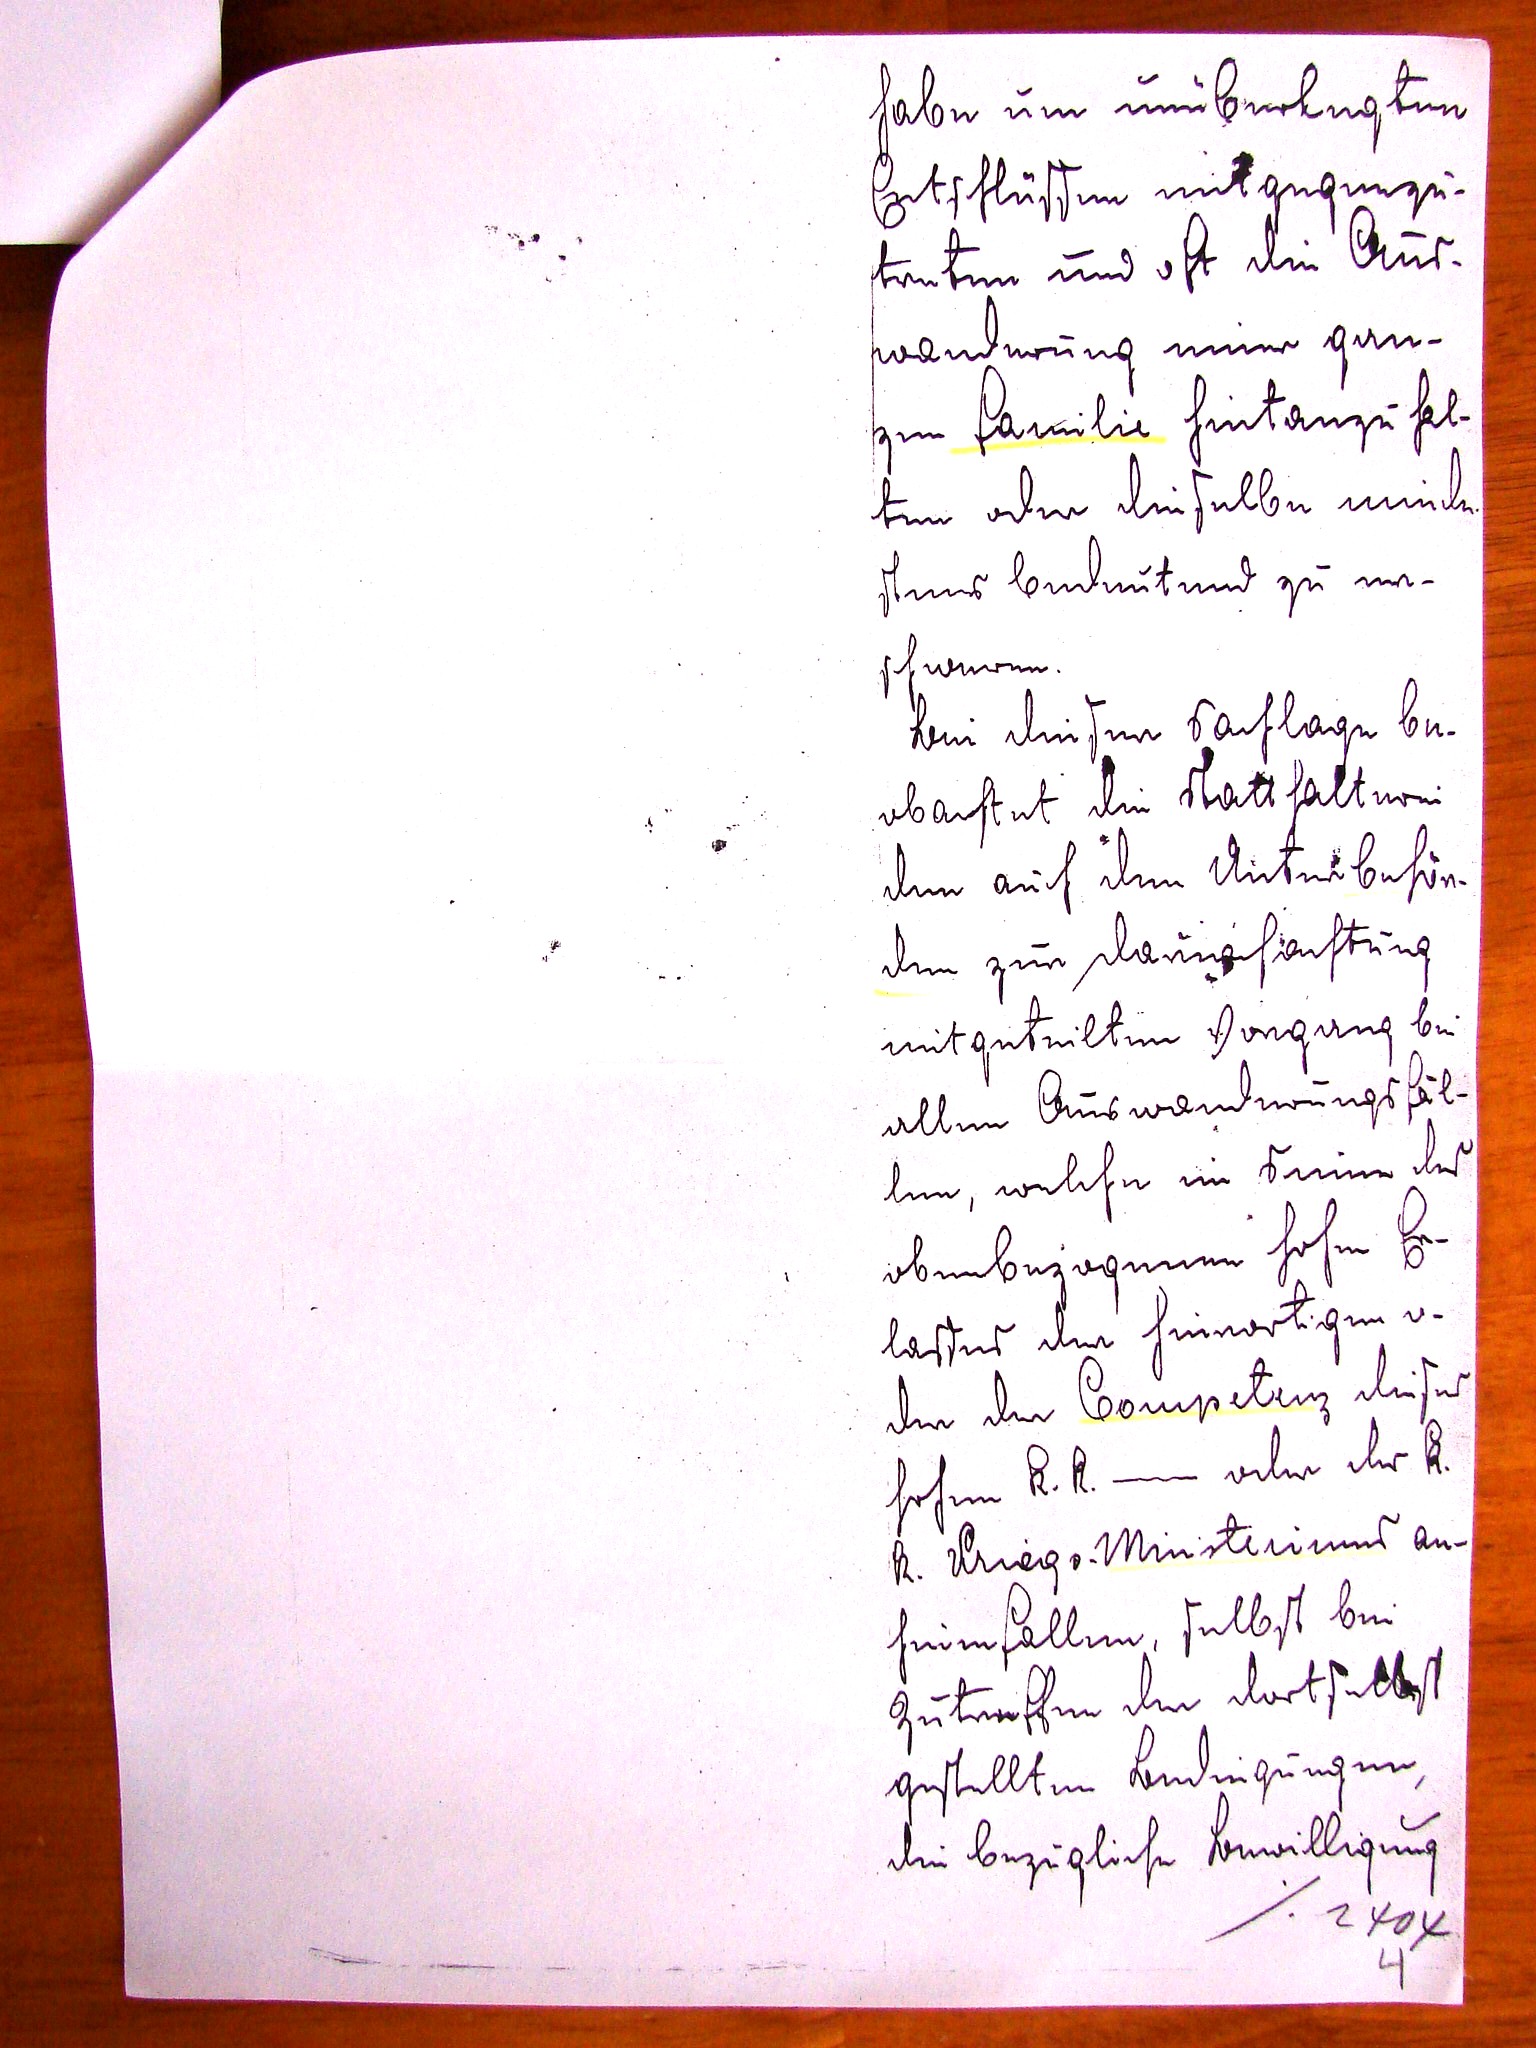 habe um unüberlegten
Entschlüssen entgegenzu-
treten und oft die Aus-
wanderung einer gan-
zen Familie hintanzuhal-
ten oder dieselbe minde-
stens bedeutend zu er-
schweren.
Bei dieser Sachlage be-
obachtet die Statthalterei
den auch den Unterbehör-
den zur Darnachachtung
mitgeteilten Vorgang bei
allen Auswanderungsfäl-
len, welche im Sinne des
obenbezogenen hohen Er-
lasses der hierortigen o-
der der Competenz dieses
hohen k. k. — oder des k.
k. Kriegs-Ministeriums an-
heimfallen, selbst bei
Zutreffen der dortselbst
gestellten Bedingungen,
die bezügliche Bewilligung
./. 2404
4